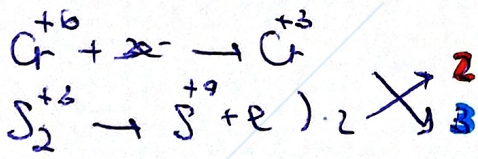 Cr⁺⁶ + 3e⁻ → Cr⁺³ 2
S₂⁺³ → S⁺⁴ + e ) · 2 3